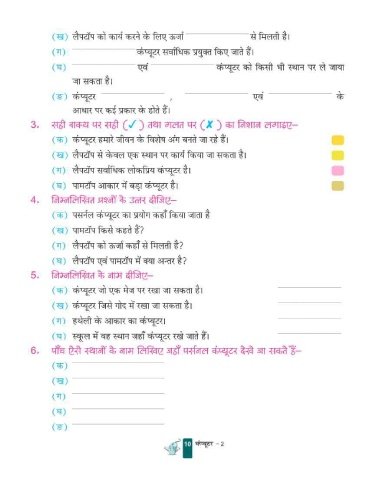 (ख) लैपटॉप को कार्य करने के लिए ऊर्जा ____________ से मिलती है।
(ग) ____________ कंप्यूटर सर्वाधिक प्रयुक्त किए जाते हैं।
(घ) ____________ एवं ____________ कंप्यूटर को किसी भी स्थान पर ले जाया
जा सकता है।
(ङ) कंप्यूटर ____________ , ____________ एवं ____________ के
आधार पर कई प्रकार के होते हैं।
3. सही वाक्य पर सही (✓) तथा गलत पर (✗) का निशान लगाइए–
(क) कंप्यूटर हमारे जीवन के विशेष अंग बनते जा रहे हैं।
(ख) लैपटॉप से केवल एक स्थान पर कार्य किया जा सकता है।
(ग) लैपटॉप सर्वाधिक लोकप्रिय कंप्यूटर है।
(घ) पामटॉप आकार में बड़ा कंप्यूटर है।
4. निम्नलिखित प्रश्नों के उत्तर दीजिए–
(क) पसर्नल कंप्यूटर का प्रयोग कहाँ किया जाता है
(ख) पामटॉप किसे कहते है?
(ग) लैपटॉप को ऊर्जा कहाँ से मिलती है?
(घ) लैपटॉप एवं पामटॉप में क्या अन्तर है?
5. निम्नलिखित के नाम दीजिए–
(क) कंप्यूटर जो एक मेज पर रखा जा सकता है। ____________
(ख) कंप्यूटर जिसे गोद में रखा जा सकता है। ____________
(ग) हथेली के आकार का कंप्यूटर। ____________
(घ) स्कूल में वह स्थान जहाँ कंप्यूटर रखे जाते हैं। ____________
6. पाँच ऐसे स्थानों के नाम लिखिए जहाँ पर्सनल कंप्यूटर देखे जा सकते हैं–
(क) ____________
(ख) ____________
(ग) ____________
(घ) ____________
(ङ) ____________
10 कंप्यूटर - 2